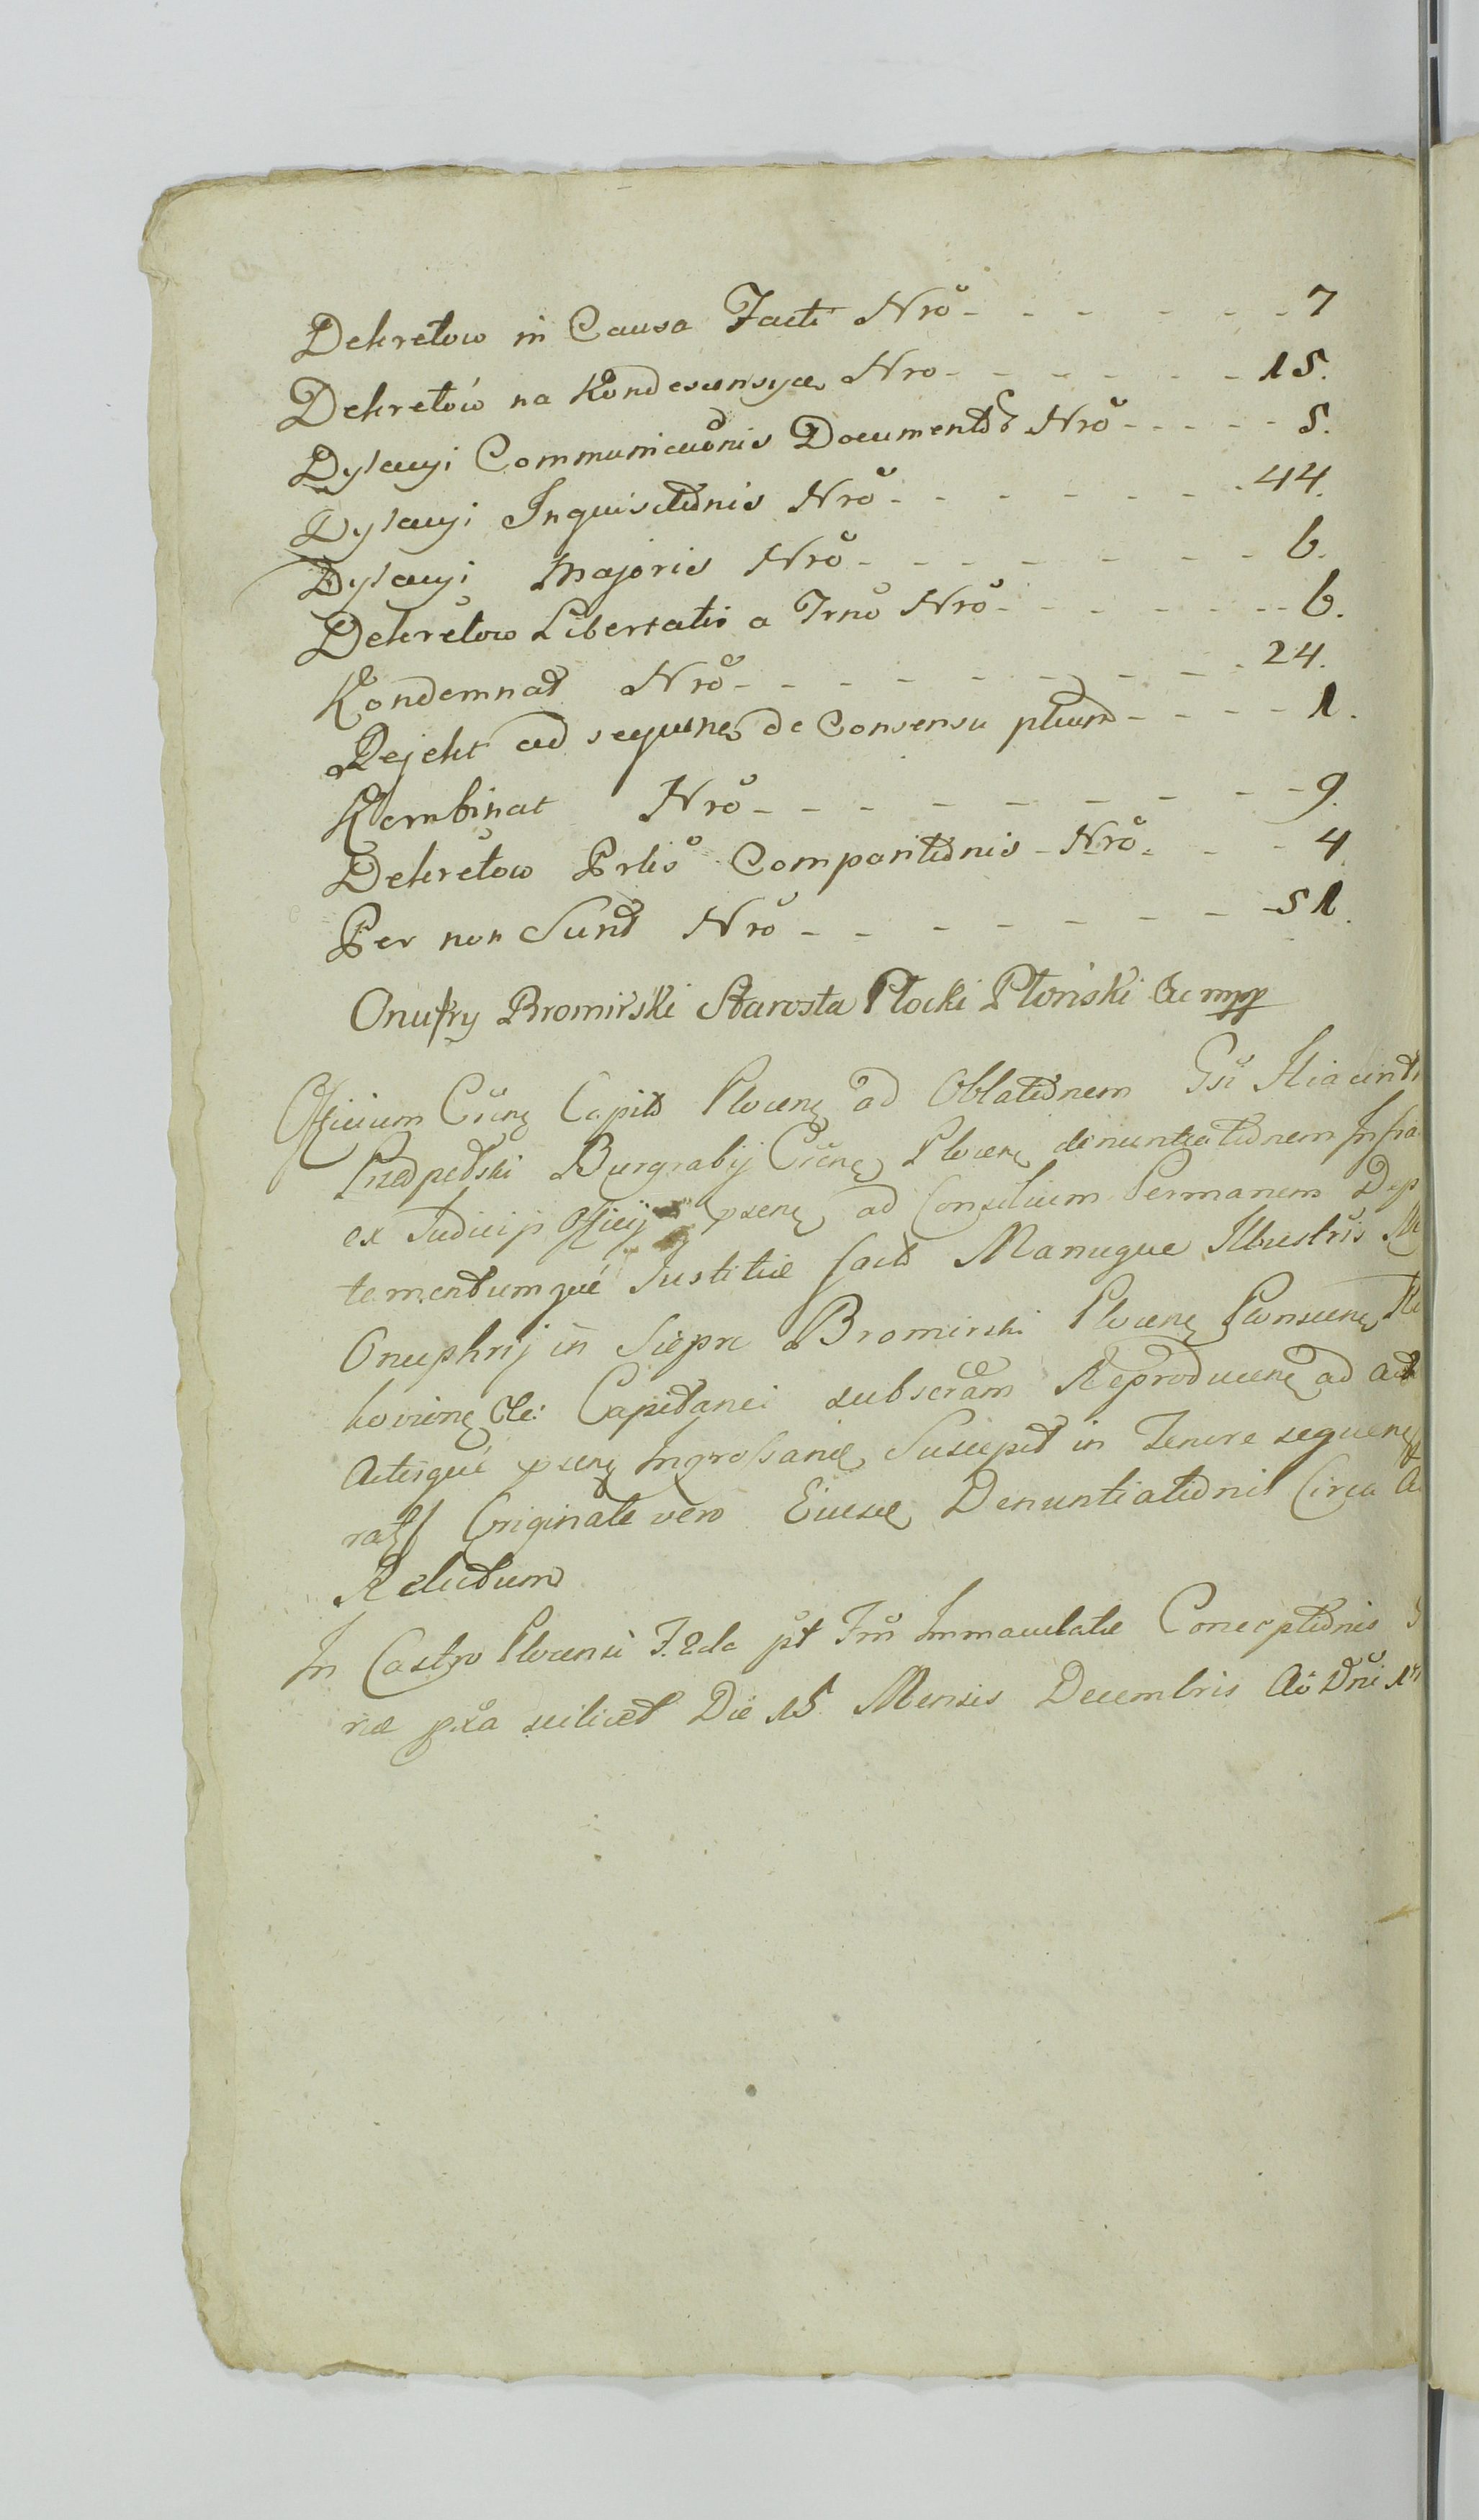 Dekretow in Causa Facti Nrō - - - - - - - 7
Dekretów na Kondescensyą Nro - - - - - - - 15.
Dylacyi Communicaōnis Documentō Nrō - - - - - 5.
Dylacyi Inquisitōnis Nrō - - - - - - - 44.
Dylacyi Majoris Nrō - - - - - - - - 6.
Dekretow Libertatis a Trnō Nrō - - - - - - - 6.
Kondemnat Nrō - - - - - - - - - 24.
Rejekt ad sequenę de Consensu ptium - - - - 1.
Kombinat Nrō - - - - - - - - - 9.
Dekretow Prlis Comparitōnis - Nrō - - - 4
Per non Sunt Nrō - - - - - - - - 51.
Onufry Bromirski Starosta Płocki Płoński &c mpp
Officium Crēnę Capit Plocenę ad Oblatōnem Gsi Hiacint
Burgrabij Crēnę Plocenę denuntiatōnem Infra
ex Judicijs Officij psenę ad Consilium Permanens Dep
tamentumqué Justitiæ fact Manuque Illustris M
Onuphrij in Siepre Bromirski Plocenę Plonscenę
&c: Capitanei subscrām Reproducenę ad Act
Actisqué psenę Ingrossanđ Suscepit in Tenore sequenę
Originale vero Eiusđ Denuntiatōnis Circa A
Relictum
In Castro Plocensi F. 2da pt Fm Immaculatæ Conceptiōnis
riæ pxa scilicet Die 15 Mensis Decembris Aō Dni 17